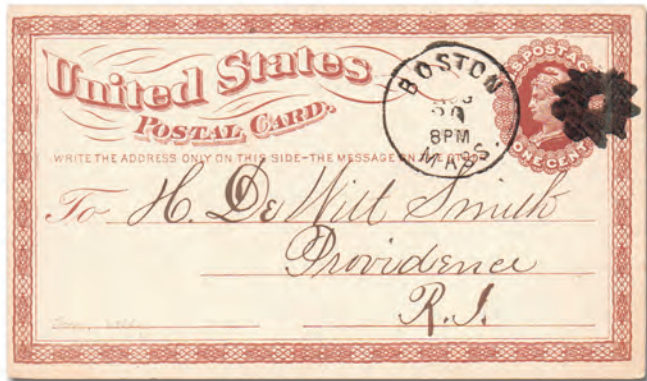 United States
POSTAL CARD.
WRITE THE ADDRESS ONLY ON THIS SIDE-THE MESSAGE ON THE
BOSTON
8PM
MASS.
U.S. POSTAGE
ONE CENT
To H. De Witt Smith
Providence
R.I.